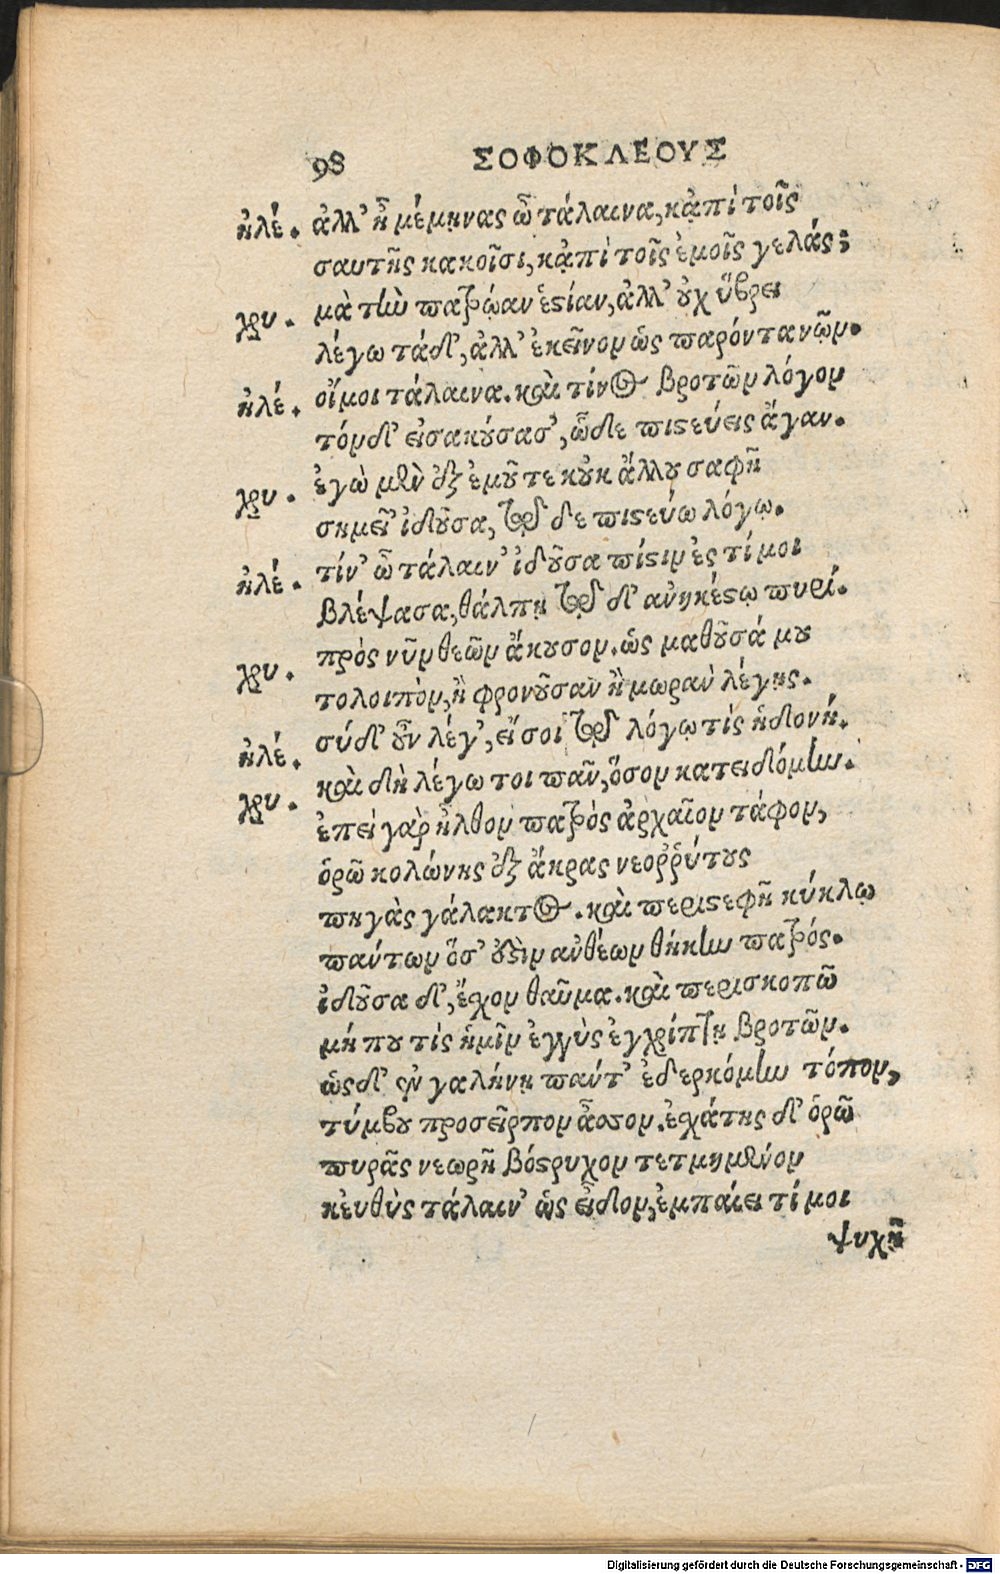 98 ΣΟΦΟΚΛΕΟΥΣ
ἠλέ. ἀλλ' ἦ μέμηνας ὦ τάλαινα, κἀπὶ τοῖς
σαυτῆς κακοῖσι, κἀπὶ τοῖς ἐμοῖς γελᾷς;
χρυ. μὰ τὴν πατρῴαν ἑστίαν, ἀλλ' οὐχ ὕβρει
λέγω τάδ', ἀλλ' ἐκεῖνον ὡς παρόντα νῷν.
ἠλέ. οἴμοι τάλαινα. καὶ τίνος βροτῶν λόγον
τόνδ' εἰσακούσασ', ὧδε πιστεύεις ἄγαν.
χρυ. ἐγὼ μὲν ἐξ ἐμοῦ τε κοὐκ ἄλλου σαφῆ
σημεῖ' ἰδοῦσα, τῷδε πιστεύω λόγῳ.
ἠλέ. τίν' ὦ τάλαιν' ἰδοῦσα πίστιν ἐς τί μοι
βλέψασα, θάλπῃ τῷδ' ἀνηκέστῳ πυρί.
χρυ. πρὸς νῦν θεῶν ἄκουσον. ὡς μαθοῦσά μου
τολοιπὸν, ἢ φρονοῦσαν ἢ μωρὰν λέγῃς.
ἠλέ. σύ δ' οὖν λέγ', εἴ σοι τῷ λόγῳ τίς ἡδονή.
χρυ. καὶ δὴ λέγω τοι πᾶν, ὅσον κατειδόμην.
ἐπεὶ γὰρ ἦλθον πατρὸς ἀρχαῖον τάφον,
ὁρῶ κολώνης ἐξ ἄκρας νεοῤῥύτους
πηγὰς γάλακτος. καὶ περιστεφῆ κύκλῳ
πάντων ὅσ' ἐστὶν ἀνθέων θήκην πατρός.
ἰδοῦσα δ', ἔσχον θαῦμα. καὶ περισκοπῶ
μή που τίς ἡμῖν ἐγγὺς ἐγχρίπτῃ βροτῶν.
ὡς δ' ἐν γαλήνῃ πάντ' ἐδερκόμην τόπον,
τύμβου προσεῖρπον ἆσσον. ἐσχάτης δ' ὁρῶ
πυρᾶς νεωρῆ βόστρυχον τετμημένον
κἀυθὺς τάλαιν' ὡς εἶδον, ἐμπαίει τί μοι
ψυχῇ
Digitalisierung gefördert durch die Deutsche Forschungsgemeinschaft - DFG